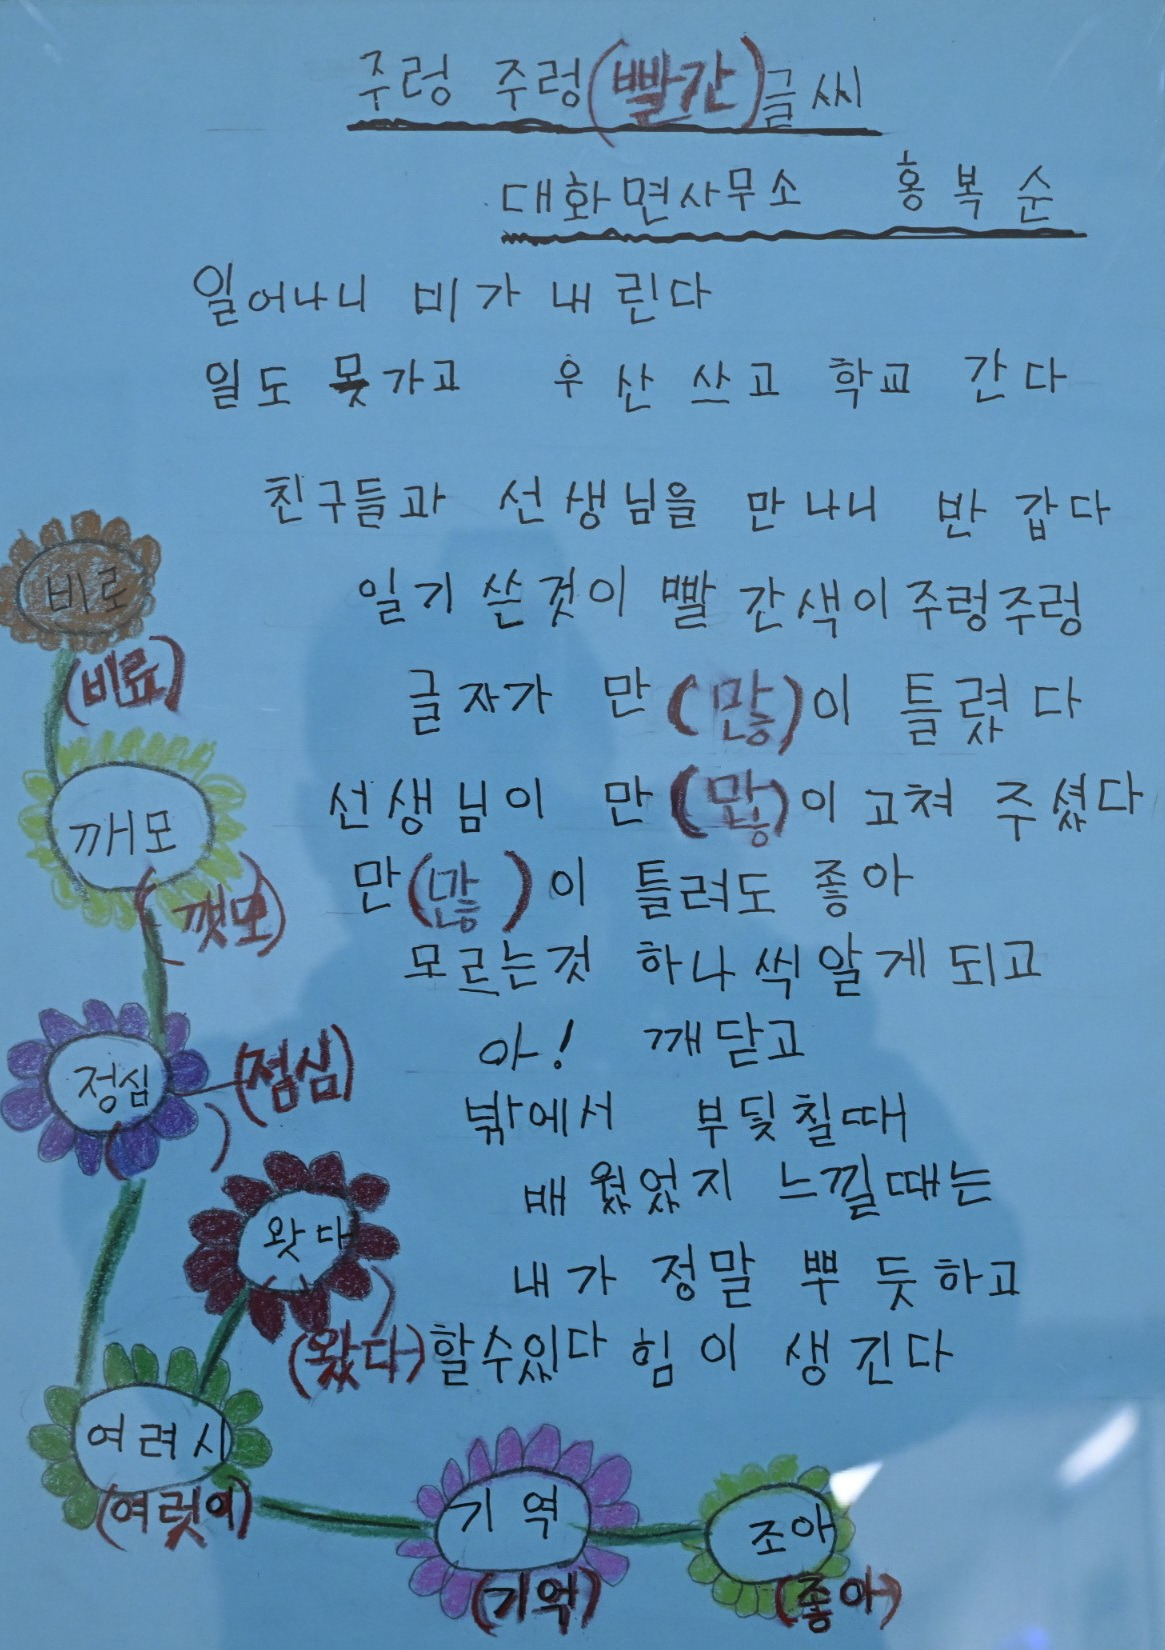 주렁 주렁(빨간)글씨
대화면사무소 홍복순
일어나니 비가 내린다
일도 못가고 우산 쓰고 학교 간다
친구들과 선생님을 만나니 반갑다
일기 쓴것이 빨간색이 주렁주렁
글자가 만(많)이 틀렸다
선생님이 만(많)이 고쳐 주셨다
만(많)이 틀려도 좋아
모르는것 하나씩 알게 되고
아! 깨닫고
밖에서 부딪칠때
배웠었지 느낄때는
내가 정말 뿌듯하고
할수있다 힘이 생긴다
비로
(비료)
깨모
(깻모)
정심
(점심)
왓다
(왔다)
여려시
(여럿이)
기역
(기억)
조아
(좋아)